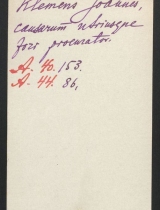 Klemens Joannes,
causarum utriusque
fori procurator.
A. 40. 153.
A. 44. 86.